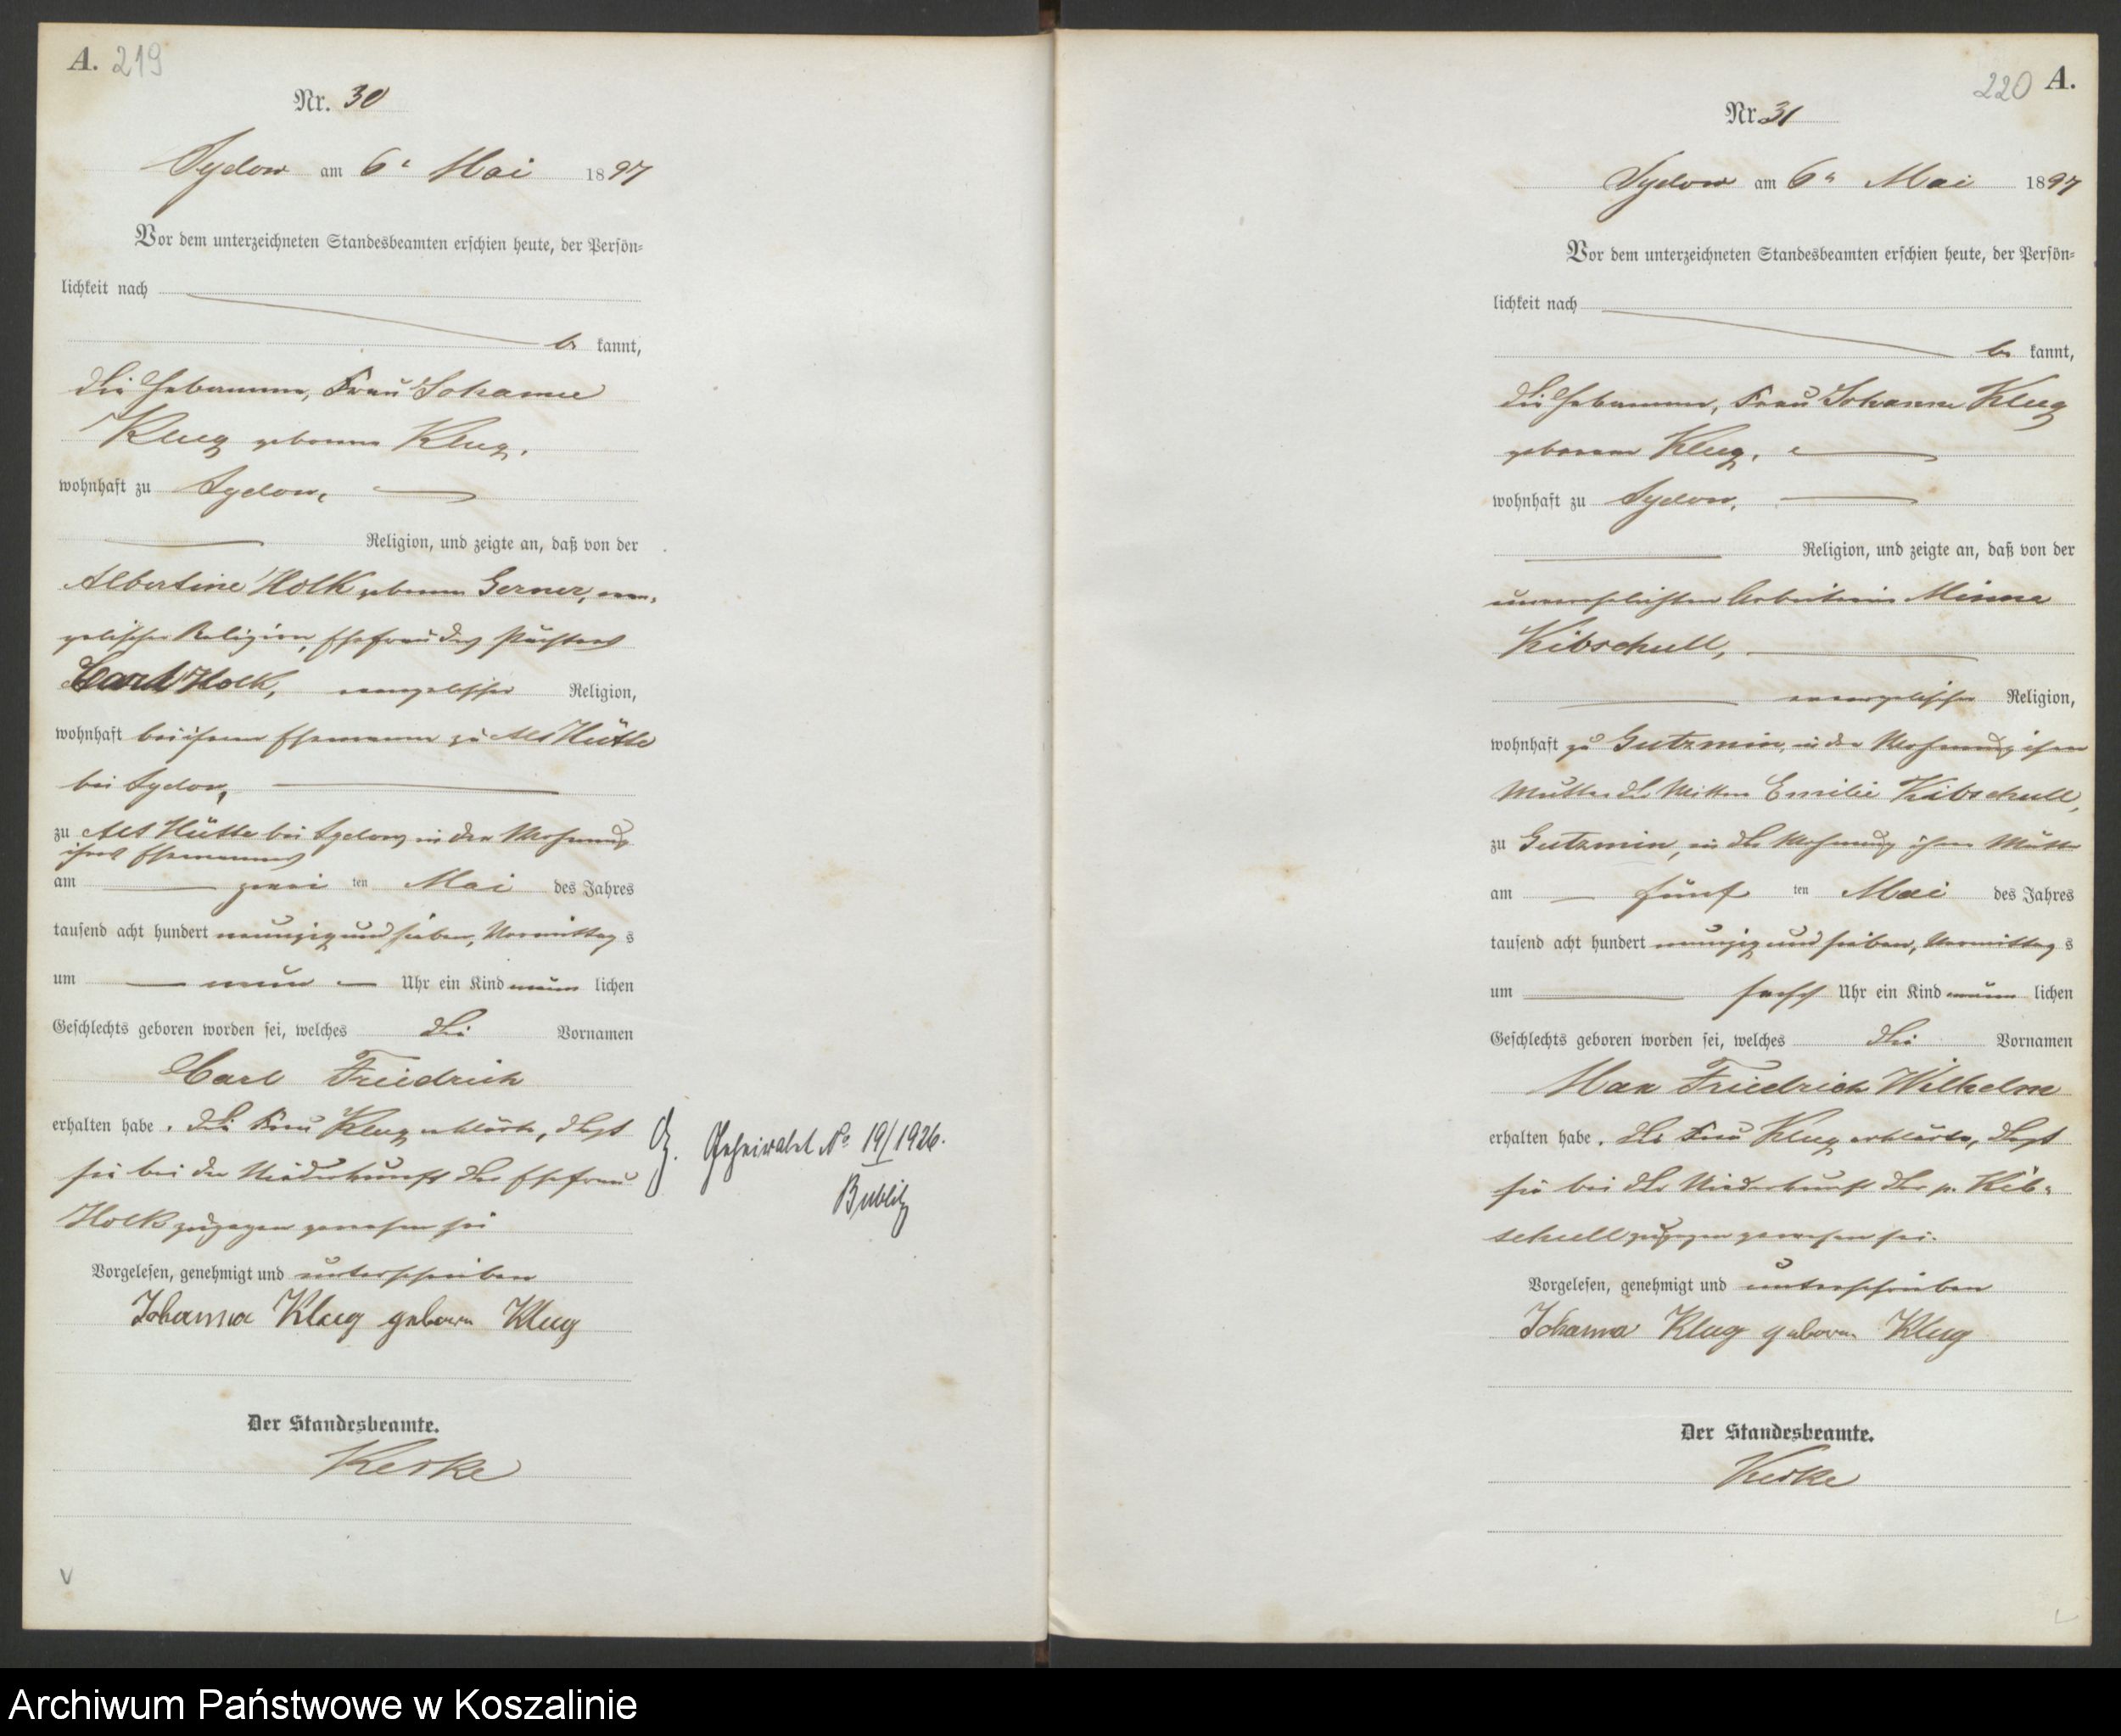 A. 219
Nr. 30
Sydow am 6t Mai 1897
Vor dem unterzeichneten Standesbeamten erschien heute, der Persön=
lichkeit nach
be kannt,
die Hebamme, Frau Johanne
Klug geborene Klug,
wohnhaft zu Sydow,
Religion, und zeigte an, daß von der
Albertine Holk geborene Gerner, evan=
gelischer Religion, Ehefrau des Pächters
Carl Holk, evangelischer Religion,
wohnhaft bei ihrem Ehemanne zu Alt Hütte
bei Sydow,
zu Alt Hütte bei Sydow, in der Wohnung
ihres Ehemannes
am zwei ten Mai des Jahres
tausend acht hundert neunzig und sieben, Vormittag s
um neun Uhr ein Kind männ lichen
Geschlechts geboren worden sei, welches die Vornamen
Carl Friedrich
erhalten habe. Die Frau Klug erklärte, daß
sie bei der Niederkunft der Ehefrau
Holk zugegen gewesen sei
Vorgelesen, genehmigt und unterschrieben
Johanna Klug geboren Klug
Der Standesbeamte.
Kerke
G. Geheiratet No 19/1926.
Bublitz
220 A.
Nr. 31
Sydow am 6t Mai 1897
Vor dem unterzeichneten Standesbeamten erschien heute, der Persön=
lichkeit nach
be kannt,
die Hebamme, Frau Johanne Klug
geborene Klug,
wohnhaft zu Sydow,
Religion, und zeigte an, daß von der
unverehelichten Arbeiterin Minna
Kibschull,
evangelischer Religion,
wohnhaft zu Gutzmin, in der Wohnung ihrer
Mutter der Wittwe Emilie Kibschull,
zu Gutzmin, in der Wohnung ihrer Mutter
am fünf ten Mai des Jahres
tausend acht hundert neunzig und sieben, Vormittag s
um sechs Uhr ein Kind männ lichen
Geschlechts geboren worden sei, welches die Vornamen
Max Friedrich Wilhelm
erhalten habe. Die Frau Klug erklärte, daß
sie bei der Niederkunft der p. Kib=
schull zugegen gewesen sei.
Vorgelesen, genehmigt und unterschrieben
Johanna Klug geboren Klug
Der Standesbeamte.
Kerke
Archiwum Państwowe w Koszalinie